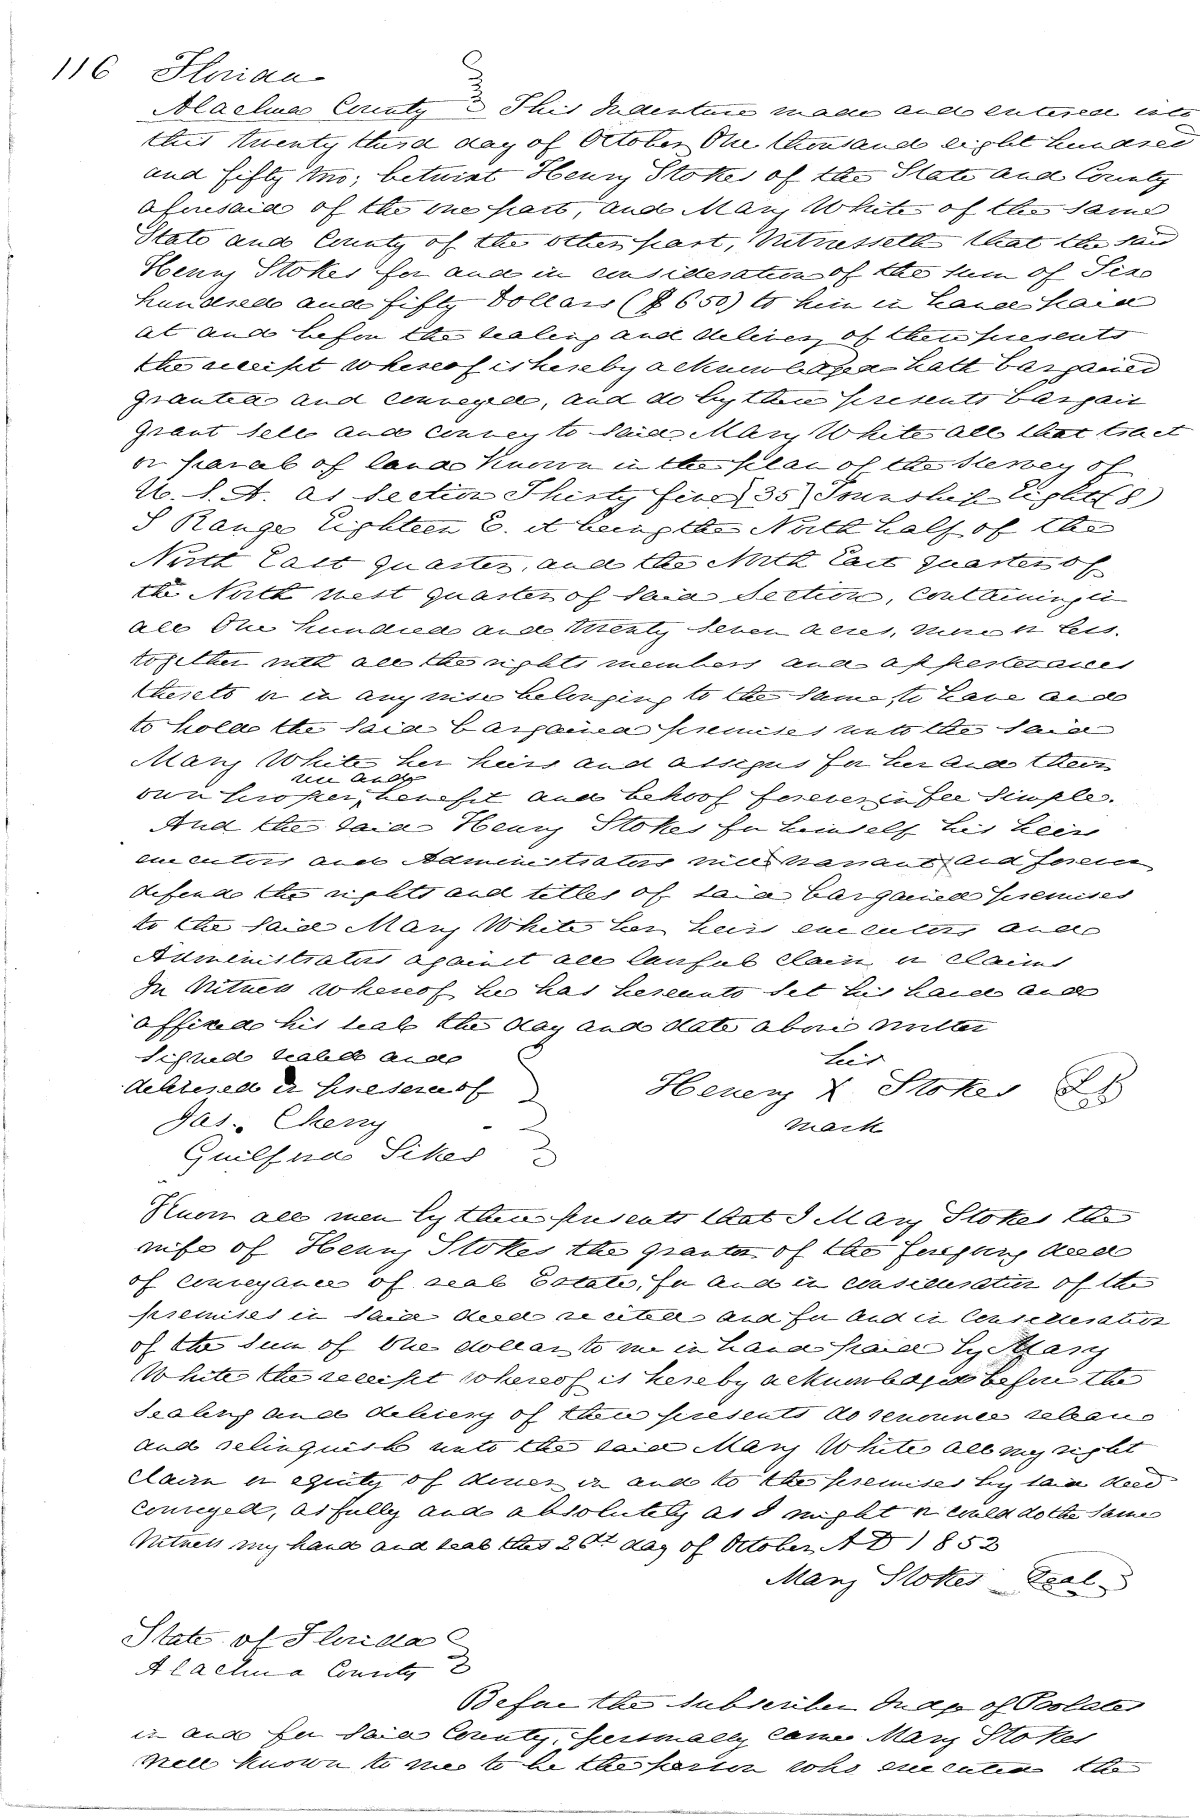 116 Florida
Alachua County This Indenture made and entered into
this twenty third day of October One thousand eight hundred
and fifty two; betwixt Henry Stokes of the State and County
aforesaid of the one part, and Mary White of the same
State and County of the other part, Witnesseth that the said
Henry Stokes for and in consideration of the sum of Six
hundred and fifty Dollars ($650) to him in hand paid
at and before the sealing and delivery of these presents
the receipt whereof is hereby acknowledged hath bargained
granted and conveyed, and do by these presents bargain
grant sell and convey to said Mary White all that tract
or parcel of land known in the plan of the survey of
U. S. A. as Section Thirty five (35) Township Eight (8)
S Range Eighteen E. it being the North half of the
North East quarter, and the North East quarter of
the North west quarter of said Section, containing in
all One hundred and twenty seven acres, more or less.
together with all the rights members and appertenances
thereto or in any wise belonging to the same, to have and
to hold the said bargained premises unto the said
Mary White her heirs and assigns for her and their
use and
own proper, benefit and behoof forever in fee simple.
And the said Henry Stokes for himself his heirs
executors and Administrators will warrant and forever
defend the rights and titles of said bargained premises
to the said Mary White her heirs executors and
Administrators against all lawful claim or claims
In Witness whereof he has hereunto set his hand and
affixed his seal the day and date above written
Signed sealed and his
delivered in presence of Henery X Stokes LS
Jas. Cherry mark
Guilford Sikes

Know all men by these presents that I Mary Stokes the
wife of Henry Stokes the grantor of the foregoing deed
of conveyance of real Estate, for and in consideration of the
premises in said deed recited and for and in consideration
of the sum of One dollar to me in hand paid by Mary
White the receipt whereof is hereby acknowledged before the
sealing and delivery of these presents do renounce release
and relinquish unto the said Mary White all my right
claim or equity of dower in and to the premises by said deed
conveyed, as fully and absolutely as I might or could do the same
Witness my hand and seal this 26th day of October A D 1852
Mary Stokes Seal

State of Florida
Alachua County
Before the subscriber Judge of Probates
in and for said County, personally came Mary Stokes
well known to me to be the person who executed the